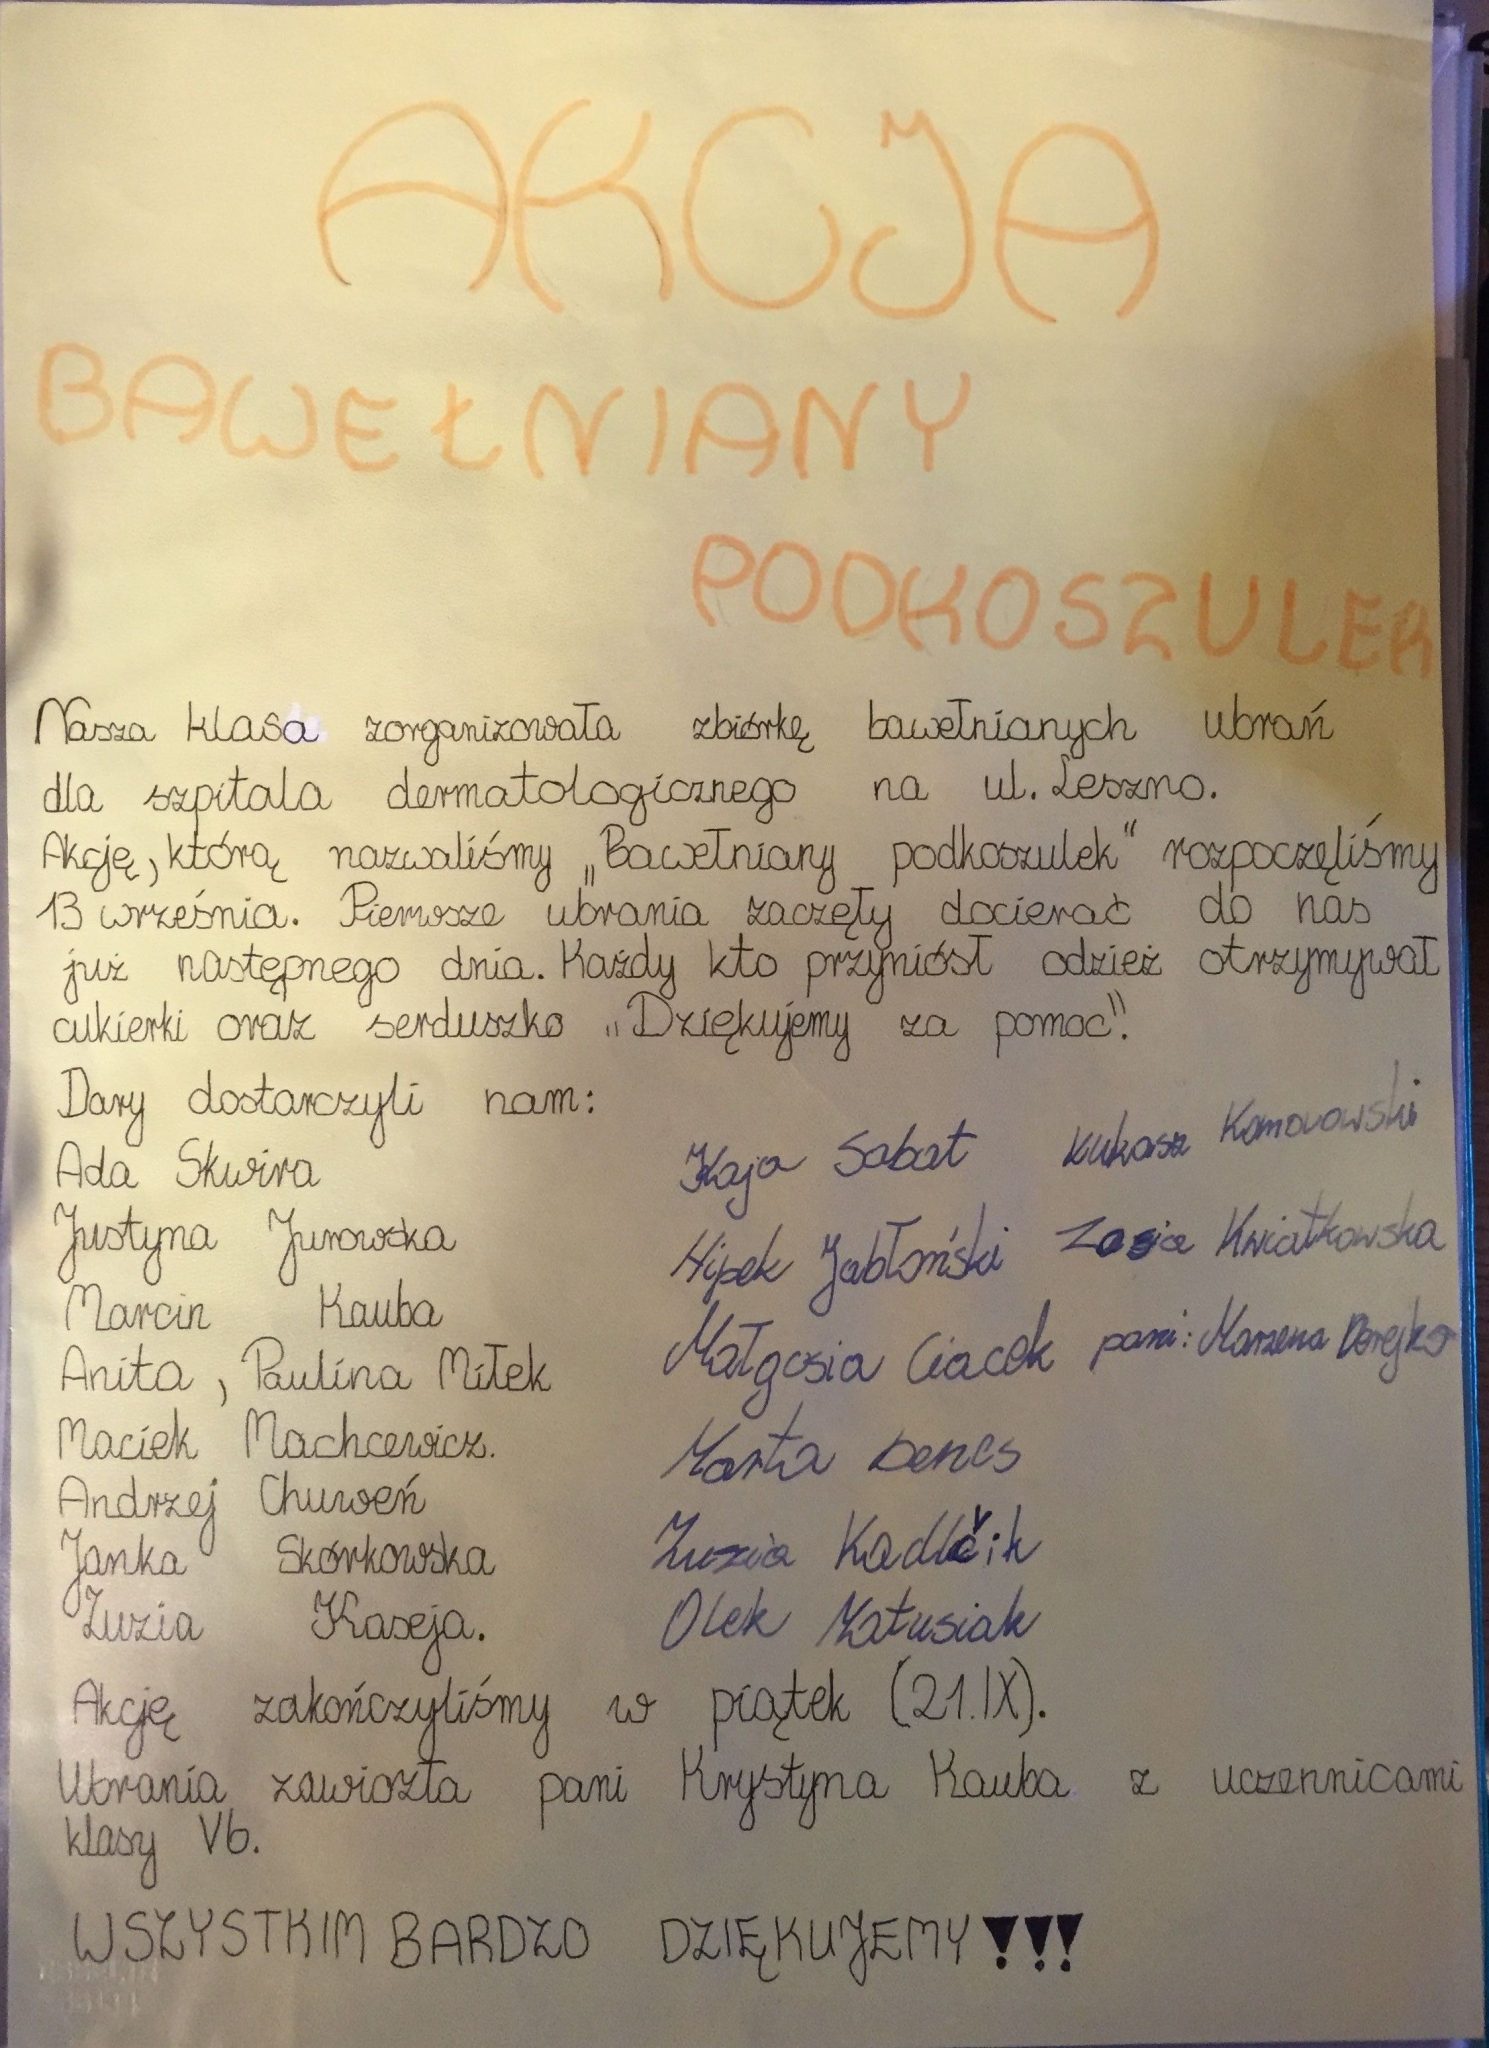 AKCJA
BAWEŁNIANY
PODKOSZULEK
Nasza klasa zorganizowała zbiórkę bawełnianych ubrań
dla szpitala dermatologicznego na ul. Leszno.
Akcję, którą nazwaliśmy „Bawełniany podkoszulek" rozpoczęliśmy
13 września. Pierwsze ubrania zaczęły docierać do nas
już następnego dnia. Każdy kto przyniósł odzież otrzymywał
cukierki oraz serduszko „Dziękujemy za pomoc".
Dary dostarczyli nam:
Ada Skwira
Justyna Jurowska
Marcin Kauba
Anita, Paulina Miłek
Maciek Machcewicz.
Andrzej Chuweń
Janka Skórkowska
Zuzia Kaseja.
Kaja Sabat
Hipek Jabłoński
Małgosia Ciacek
Marta Denes
Zuzia Kadlčik
Olek Matusiak
Łukasz Komorowski
Zosia Kwiatkowska
pani: Marzena Derejko
Akcję zakończyliśmy w piątek (21.IX).
Ubrania zawiozła pani Krystyna Kauba z uczennicami
klasy Vb.
WSZYSTKIM BARDZO DZIĘKUJEMY!!!